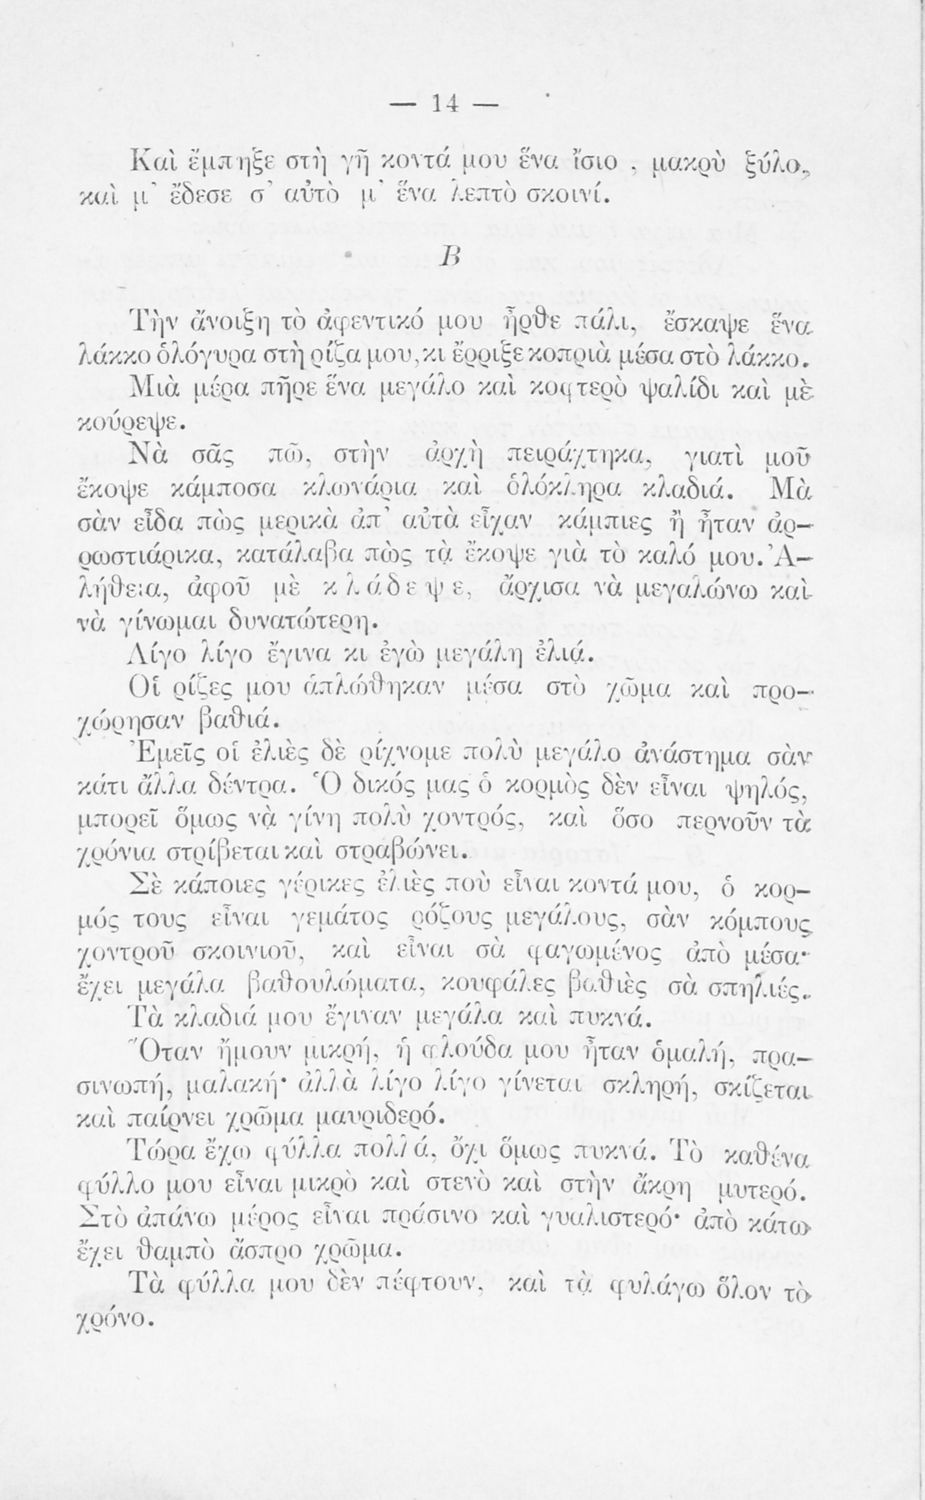 — 14 —
Καὶ ἔμπηξε στὴ γῆ κοντά μου ἕνα ἴσιο , μακρὺ ξύλο,
καὶ μ᾿ ἔδεσε σ᾿ αὐτὸ μ᾿ ἕνα λεπτὸ σκοινί.
Β
Τὴν ἄνοιξη τὸ ἀφεντικό μου ἦρθε πάλι, ἔσκαψε ἕνα
λάκκο ὁλόγυρα στὴ ρίζα μου, κι ἔρριξε κοπριὰ μέσα στὸ λάκκο.
Μιὰ μέρα πῆρε ἕνα μεγάλο καὶ κοφτερὸ ψαλίδι καὶ μὲ
κούρεψε.
Νὰ σᾶς πῶ, στὴν ἀρχὴ πειράχτηκα, γιατὶ μοῦ
ἔκοψε κάμποσα κλωνάρια καὶ ὁλόκληρα κλαδιά. Μὰ
σὰν εἶδα πὼς μερικὰ ἀπ᾿ αὐτὰ εἶχαν κάμπιες ἢ ἦταν ἀρ—
ρωστιάρικα, κατάλαβα πὼς τὰ ἔκοψε γιὰ τὸ καλό μου. Ἀ—
λήθεια, ἀφοῦ μὲ κ λ ά δ ε ψ ε, ἄρχισα νὰ μεγαλώνω καὶ
νὰ γίνωμαι δυνατώτερη.
Λίγο λίγο ἔγινα κι ἐγὼ μεγάλη ἐλιά.
Οἱ ρίζες μου ἁπλώθηκαν μέσα στὸ χῶμα καὶ προ—
χώρησαν βαθιά.
Ἐμεῖς οἱ ἐλιὲς δὲ ρίχνομε πολὺ μεγάλο ἀνάστημα σὰν
κάτι ἄλλα δέντρα. Ὁ δικός μας ὁ κορμὸς δὲν εἶναι ψηλός,
μπορεῖ ὅμως νὰ γίνη πολὺ χοντρός, καὶ ὅσο περνοῦν τὰ
χρόνια στρίβεται καὶ στραβώνει.
Σὲ κάποιες γέρικες ἐλιὲς ποὺ εἶναι κοντά μου, ὁ κορ—
μός τους εἶναι γεμάτος ρόζους μεγάλους, σὰν κόμπους
χοντροῦ σκοινιοῦ, καὶ εἶναι σὰ φαγωμένος ἀπὸ μέσα·
ἔχει μεγάλα βαθουλώματα, κουφάλες βαθιὲς σὰ σπηλιές.
Τὰ κλαδιά μου ἔγιναν μεγάλα καὶ πυκνά.
Ὅταν ἤμουν μικρή, ἡ φλούδα μου ἦταν ὁμαλή, πρα—
σινωπή, μαλακή· ἀλλὰ λίγο λίγο γίνεται σκληρή, σκίζεται
καὶ παίρνει χρῶμα μαυριδερό.
Τώρα ἔχω φύλλα πολλά, ὄχι ὅμως πυκνά. Τὸ καθένα
φύλλο μου εἶναι μικρὸ καὶ στενὸ καὶ στὴν ἄκρη μυτερό.
Στὸ ἀπάνω μέρος εἶναι πράσινο καὶ γυαλιστερό· ἀπὸ κάτω
ἔχει θαμπὸ ἄσπρο χρῶμα.
Τὰ φύλλα μου δὲν πέφτουν, καὶ τὰ φυλάγω ὅλον τὸ
χρόνο.